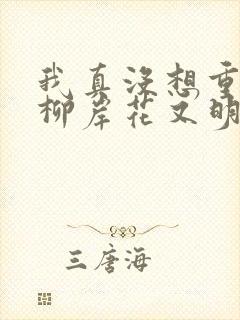 我真没想重
柳岸花又明
三唐海